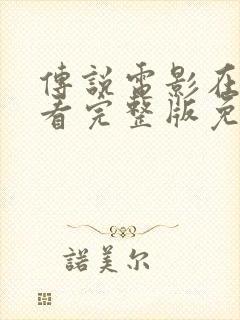 傳說電影在
看完整版免
諾美尔